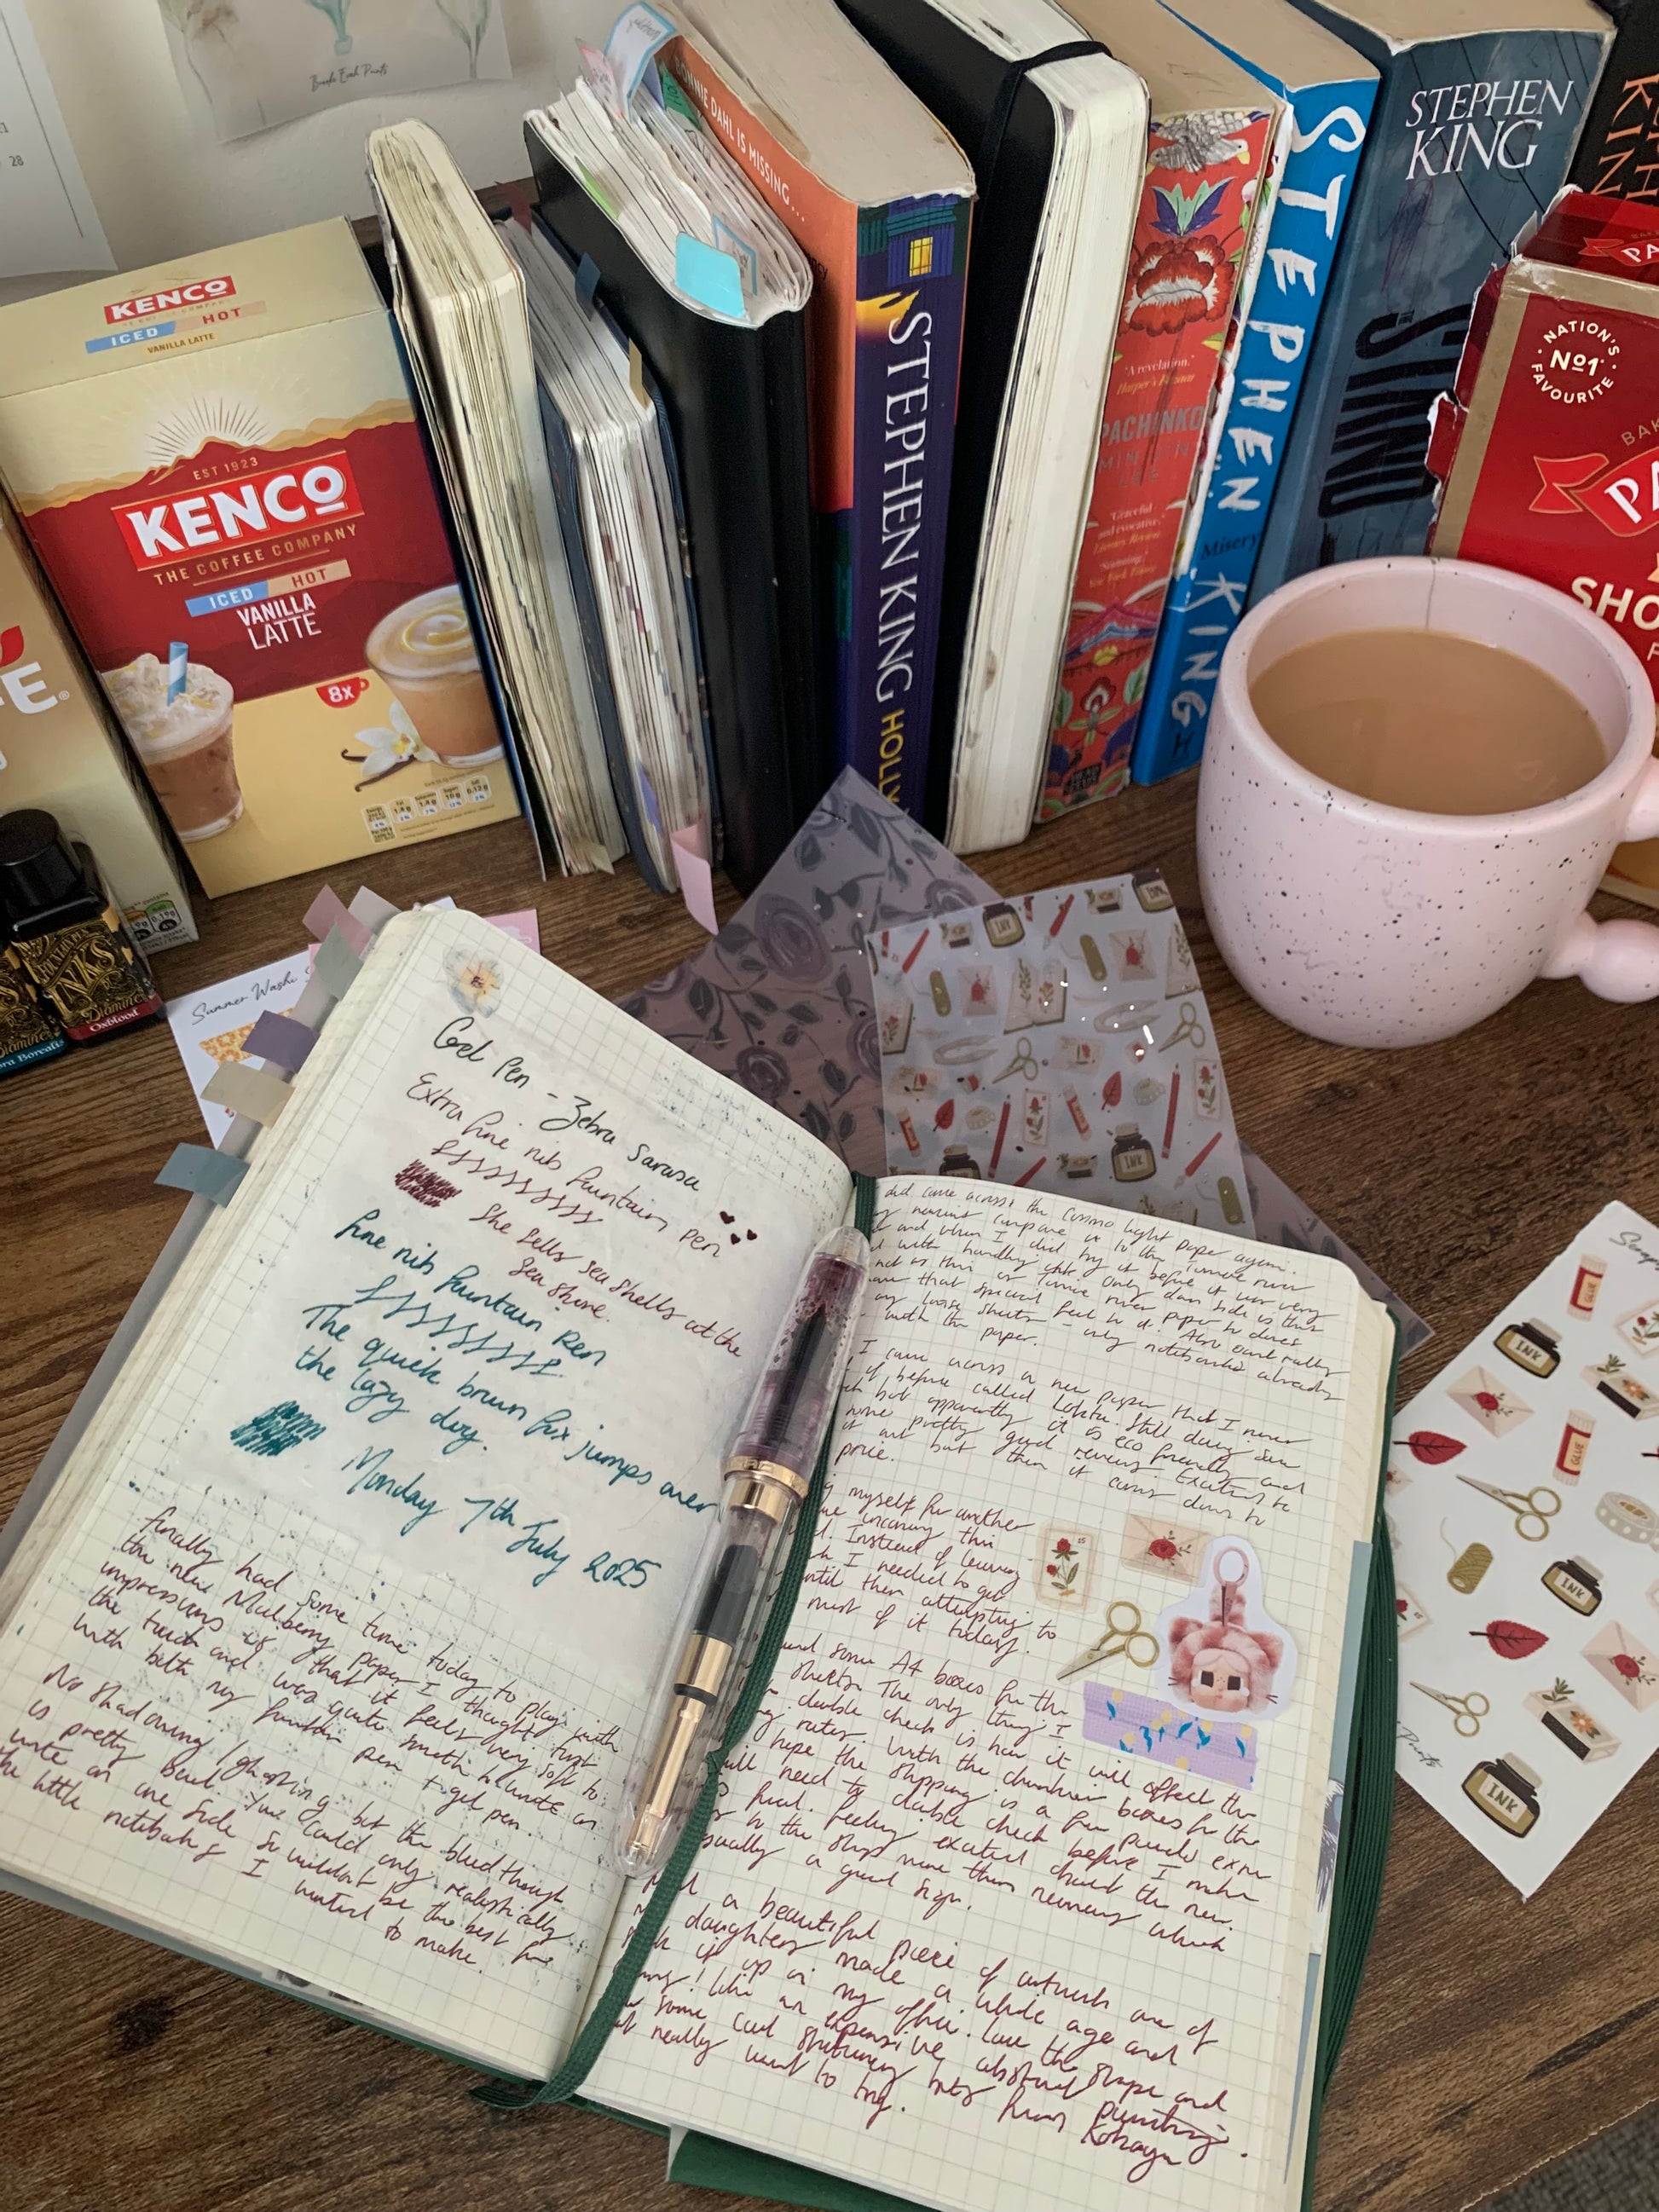 Brooke Evah Prints
21
28
KENCO
ICED HOT
VANILLA LATTE
EST 1923
KENCO
THE COFFEE COMPANY
ICED HOT
VANILLA
LATTE
8x
BONNIE DAHL IS MISSING...
STEPHEN KING HOLLY
'A revelation.'
Harper's Bazaar
PACHINKO
MIN JIN
LEE
'Graceful
and evocative.'
Literary Review
'Stunning.'
New York Times
STEPHEN KING
Misery
STEPHEN
KING
THE
STAND
KING
PA
NATION'S
No1
FAVOURITE
BAK
PA
SHO
INKS
Diamine
Oxblood
Diamine
Aurora Borealis
Summer Washi
INK
INK
INK
INK
INK
GLUE
GLUE
Prints
Gel Pen - Zebra Sarasa
Extra fine nib fountain pen
She sells sea shells at the
Sea shore.
Fine nib fountain pen
The quick brown fox jumps over
the lazy dog.
Monday 7th July 2025
Finally had some time today to play with
the new Mulberry paper I thought. First
impressions is that it feels very soft to
the touch and was quite smooth to write on
with both my fountain pen + gel pen.
No shadowing / ghosting but the bleedthrough
is pretty bad. You could only realistically
write on one side so wouldn't be the best for
the little notebooks I wanted to make.
did come across the Cosmo light paper again.
compare it to the Tomoe river
and when I did try it before it was very
with handling ink. Only down side is this
not as thin as Tomoe river paper so does
that special feel to it. Also can't really
any loose sheets - only notebooks already
with the paper.
I came across a new paper that I never
of before called Lokta. Still doing some
but apparently it is eco friendly and
some pretty good reviews. Excited to
it out but then it comes down to
price.
myself for another
this
Instead of leaving
I needed to get
until then attempting to
most of it today!
found some A4 boxes for the
sheets. The only thing I
double check is how it will affect the
rates. With the chunkier boxes for the
hope the shipping is a few pounds extra
will need to double check before I make
final. Feeling excited about the new
to the shop more than nervous which
usually a good sign.
a beautiful piece of artwork one of
daughters made a while ago and
it up in my office. Love the shape and
like an expensive abstract painting.
some cool stationery bits from Kokuyo
really want to try.